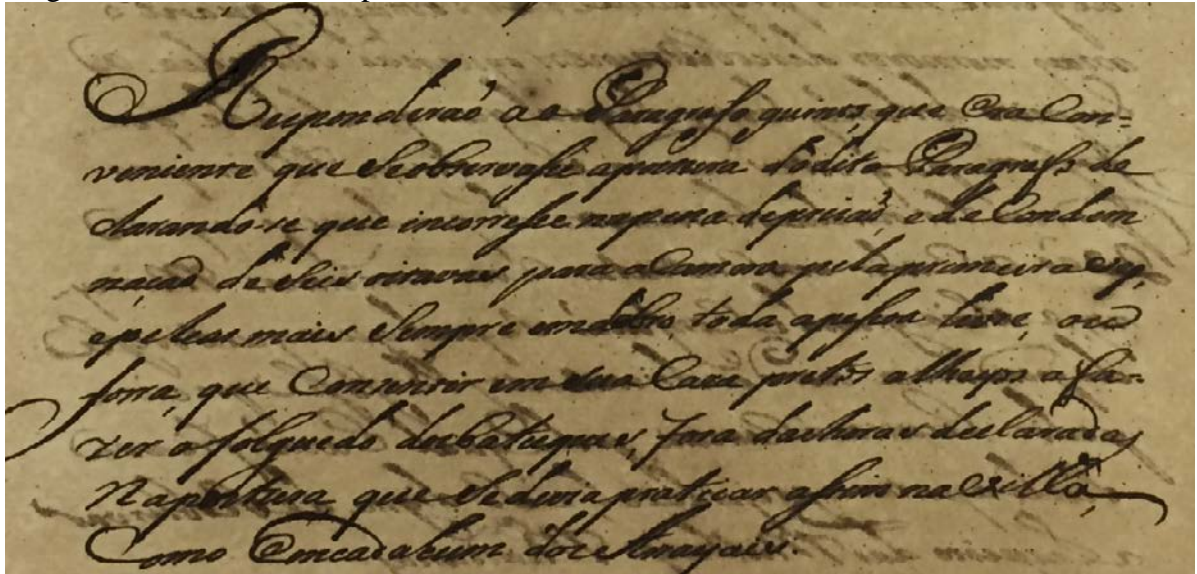 Responderaõ ao Paragrafo quinto, que Era Con=
veniente que Seobservasse apostura dodito Paragrafo de
clarando-se que incorresse napena deprizaõ, ede Condem
naçaõ de Seis oitavas para aCamera pelaprimeira vez,
epelas mais Sempre emdobro, toda apessoa livre, ou
forra, que Consentir em sua Caza pretos alheyos a fa=
zer o folguedo dosbatuques, fora dashoras declaradas
Napostura que Sedeviapraticar assim naVilla,
Como Emcadahum dos Arrayaes.